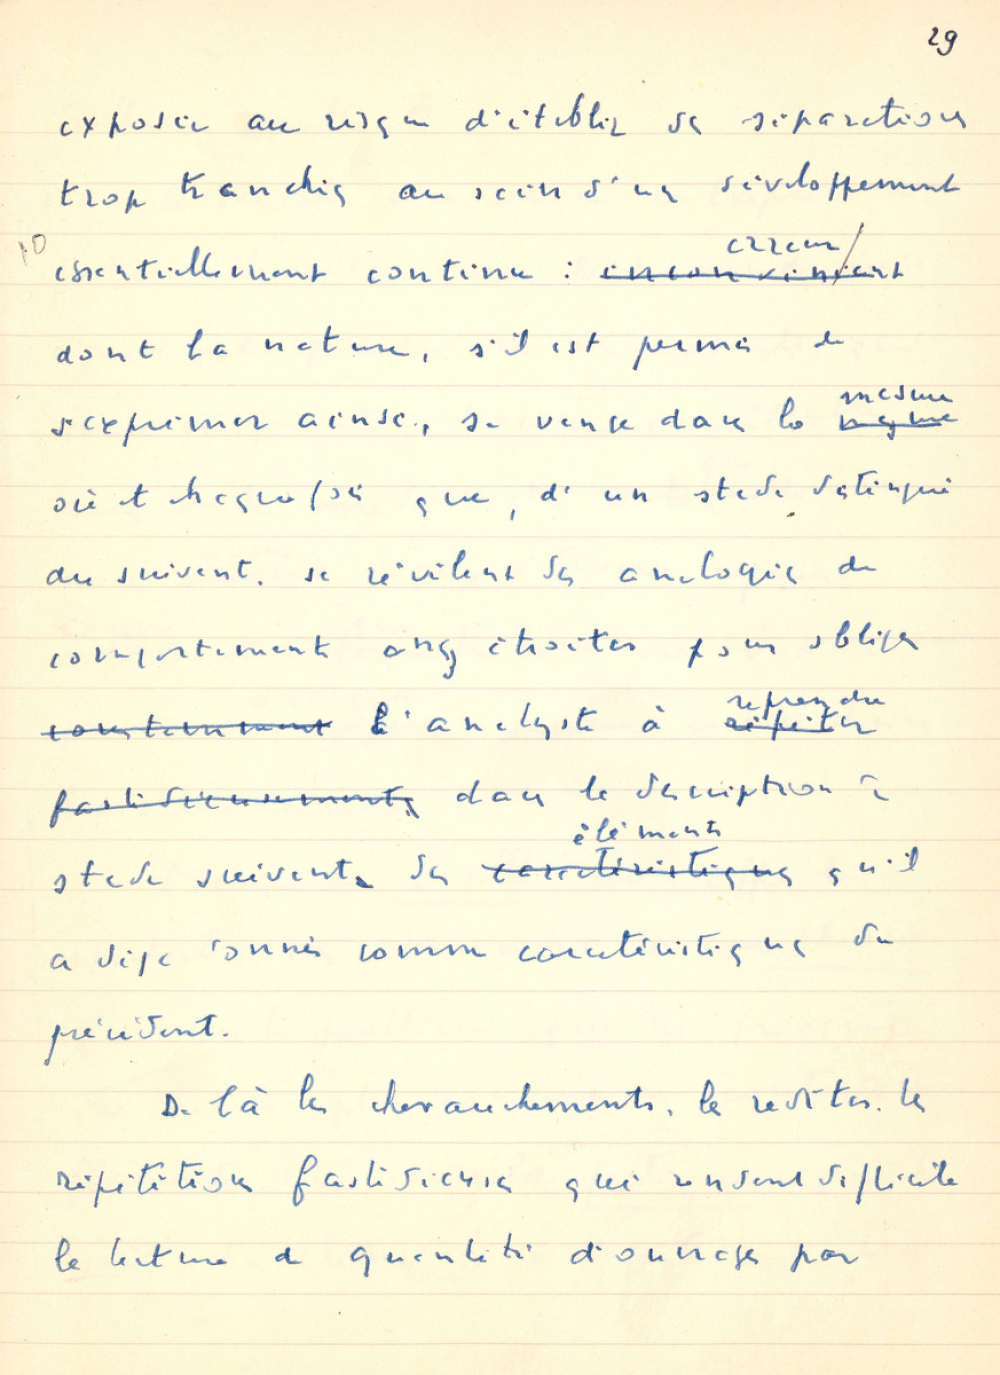 29
exposer au risque d'établir des séparations
trop tranchées au sein d'un développement
10
erreur
essentiellement continu : inconvénient
dont la nature, s'il est permis de
mesure
s'exprimer ainsi, se venge dans la
où chaque fois que, d'un stade distingué
du suivant, se révèlent des analogies de
comportements assez étroites pour obliger
reprendre
constamment l'analyste à répéter
fastidieusement dans la description du
éléments
stade suivant, des caractéristiques qu'il
a déjà donnés comme caractéristiques du
précédent.
De là les chevauchements, les redites, les
répétitions fastidieuses qui rendent difficile
la lecture de quantité d'ouvrages par